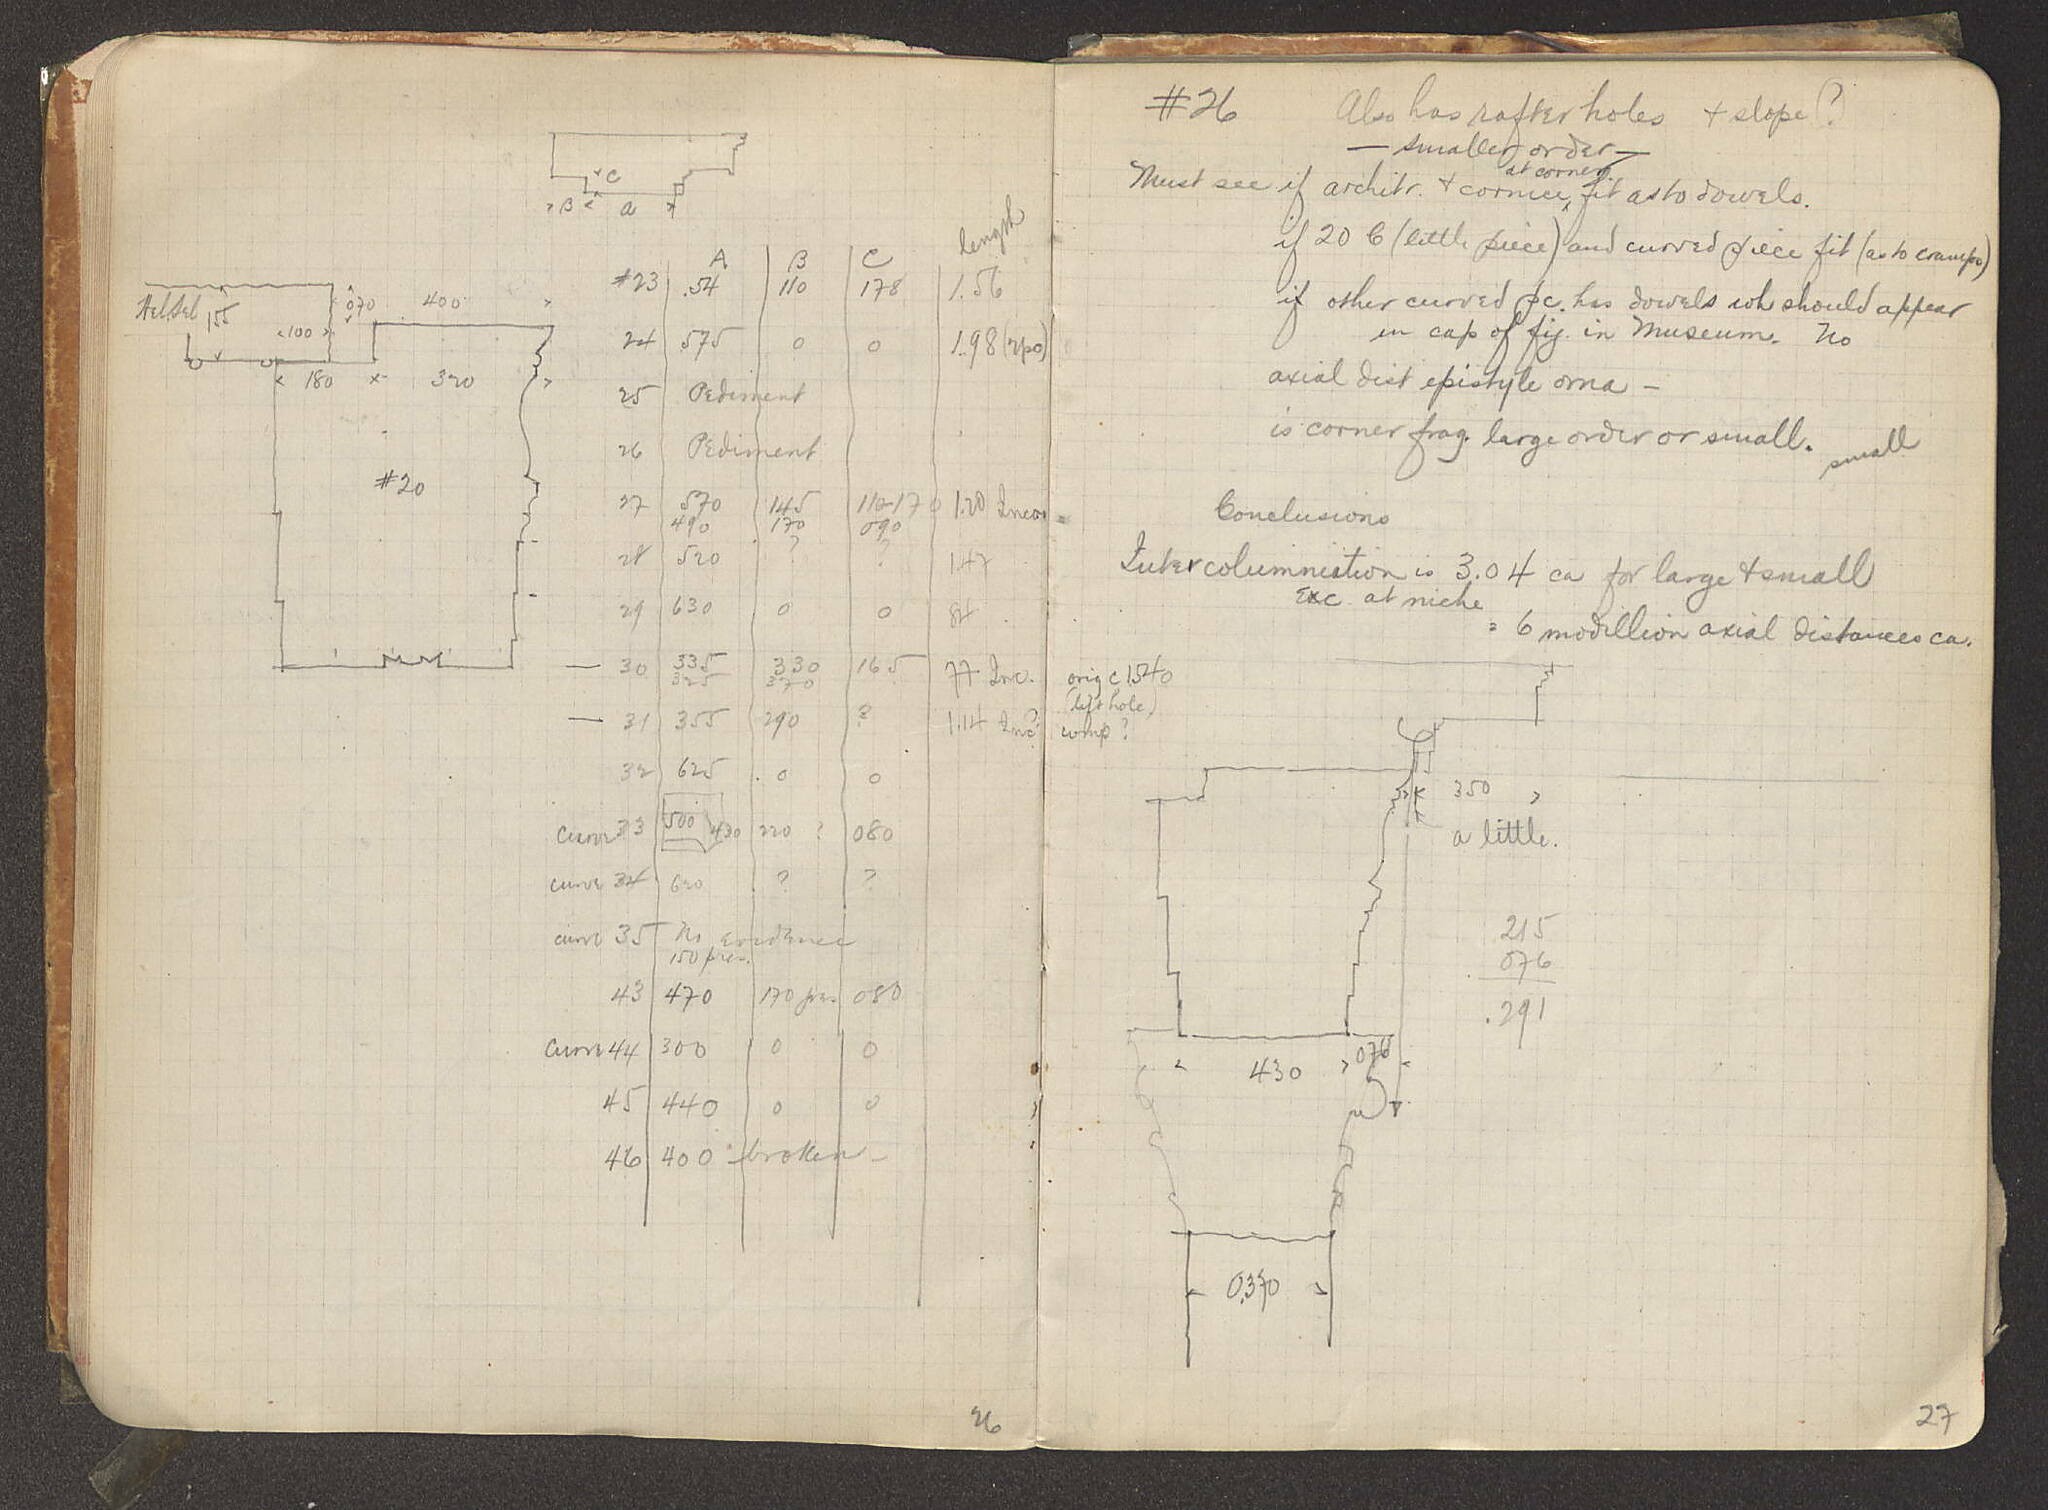 C
B a
A B C length
#23 .54 110 178 1.56
24 .575 0 0 1.98 (rpo)
25 Pediment
26 Pediment
27 570 145 110-170 1.20 Incom
490 170 090
28 520 ? ? 1.47
29 630 0 0 84
— 30 335 330 165 77 Inc. orig c 1.540
325 370 (left hole)
— 31 355 290 ? 1.14 Inc? comp?
32 625 0 0
Curve 33 500 430 220 ? 080
curve 34 620 ? ?
curve 35 No evidence
150 pres.
43 470 170 pres. 080
Curve 44 300 0 0
45 440 0 0
46 400 – broken –
155 100 070 400
180 320
#20
26
#26 Also has rafter holes + slope (?)
— smaller order —
at corner
Must see if archit. + cornice fit as to dowels.
if 20 6 (little piece) and curved piece fit (as to cramps)
if other curved pc. has dowels wh should appear
in cap of fig. in Museum. No
axial dist epistyle orna –
is corner frag. large order or small. small
Conclusions
Intercolumniation is 3.04 ca for large + small
Exc. at niche
= 6 modillion axial distances ca.
350
a little.
215
076
.291
430 076
0.370
27